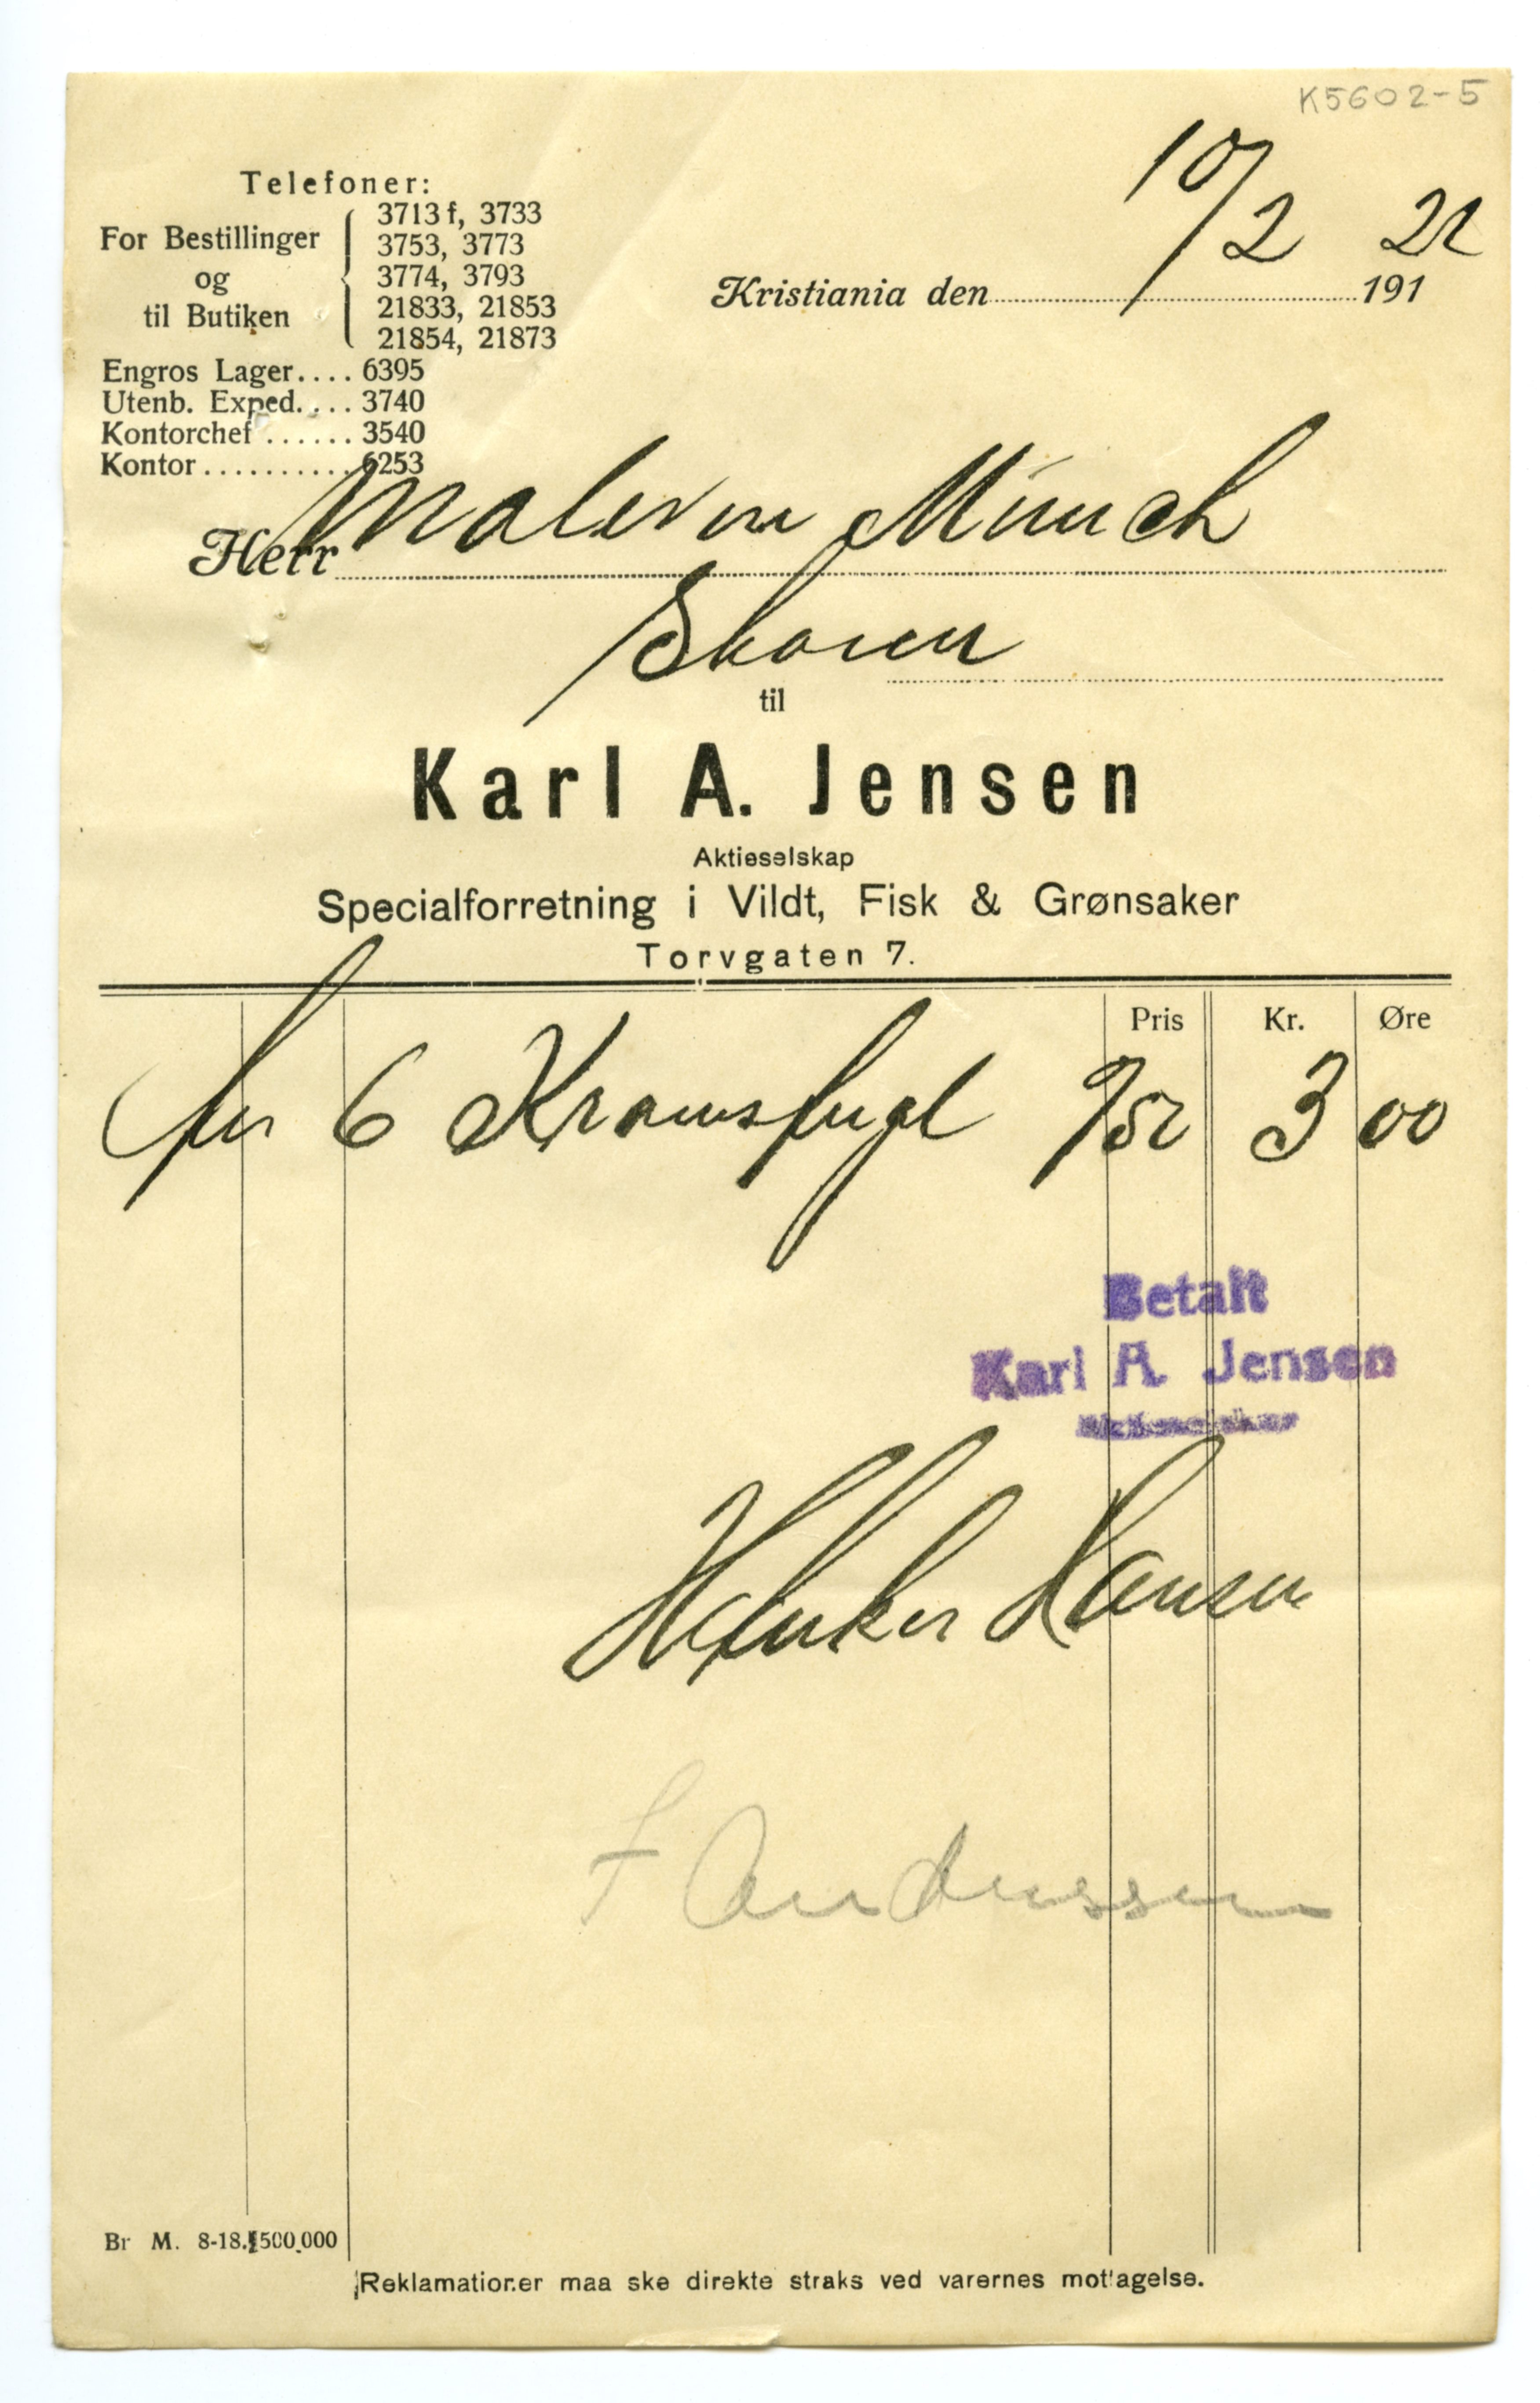 K5602-5
Telefoner:
For Bestillinger og til Butiken
3713 f, 3733
3753, 3773
3774, 3793
21833, 21853
21854, 21873
Engros Lager.... 6395
Utenb. Exped.... 3740
Kontorchef ...... 3540
Kontor .......... 6253
10/2 21
Kristiania den 191
Herr Maleren Münch
Skoien
til
Karl A. Jensen
Aktieselskap
Specialforretning i Vildt, Fisk & Grønsaker
Torvgaten 7.
Pris Kr. Øre
for 6 Kramsfugl 3 00
Betalt
Karl A. Jensen
Aktieselskap
Hansen
F Andressen
Br M. 8-18. 500,000
Reklamationer maa ske direkte straks ved varernes mottagelse.